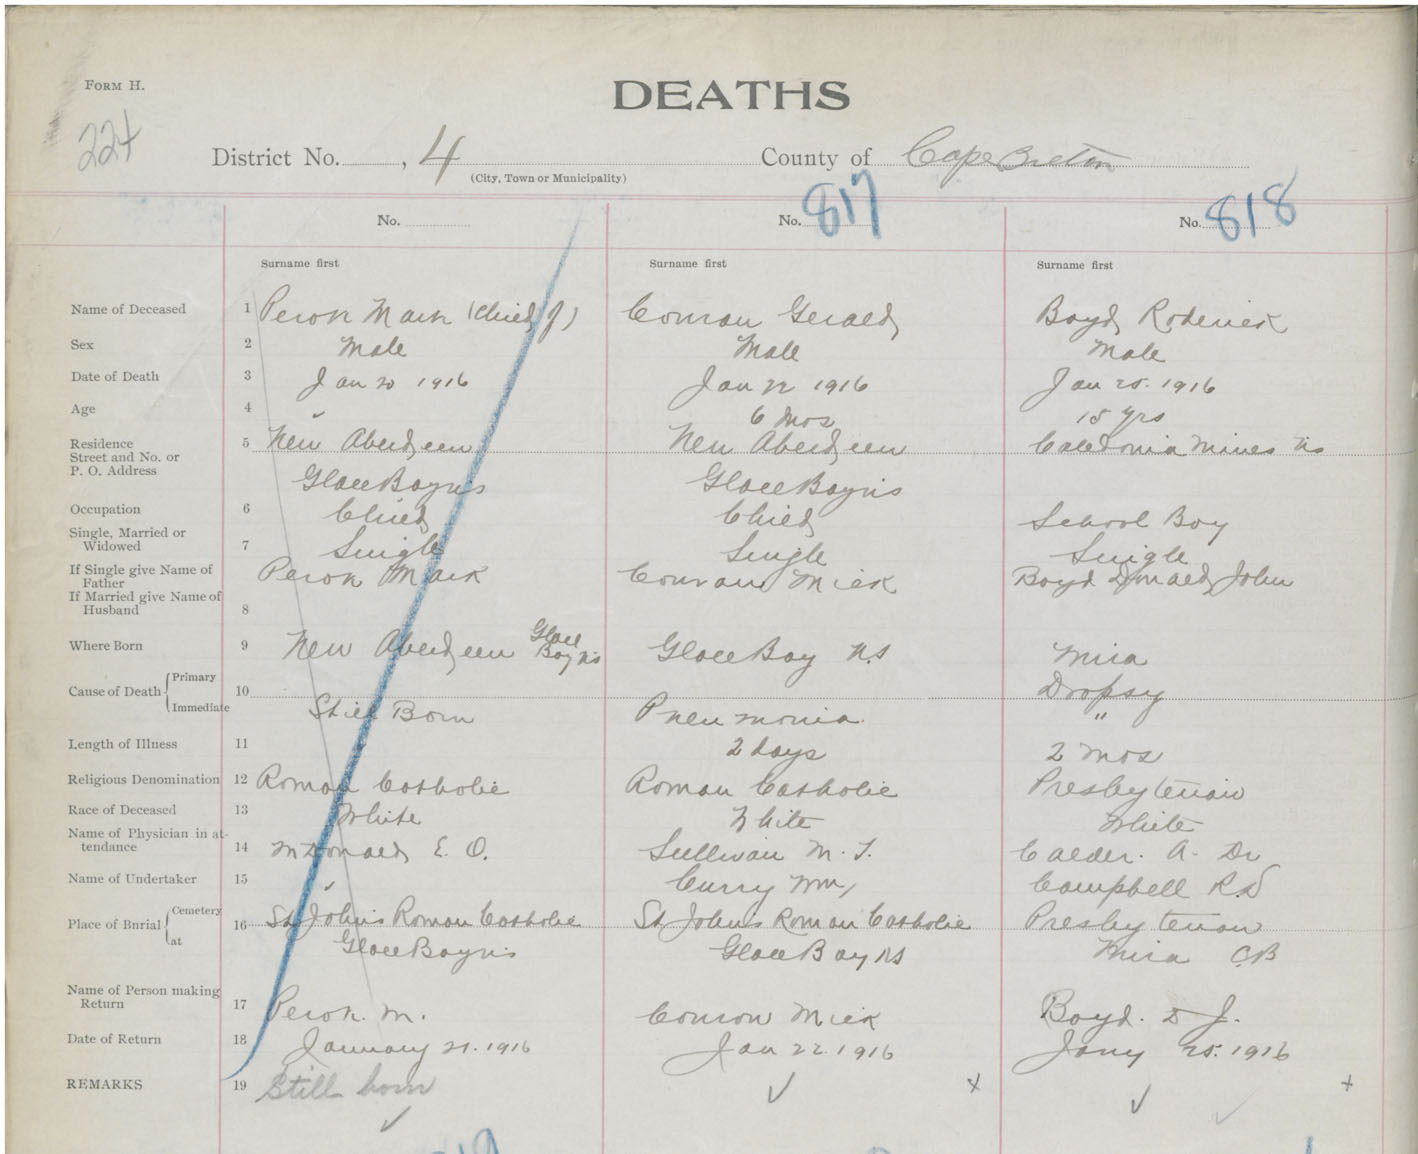 FORM H.
DEATHS
224
District No. , 4 County of Cape Breton
(City, Town or Municipality)
No. No. 817 No. 818
Surname first Surname first Surname first
Name of Deceased 1 Peron Mark (Child of) Conran Gerald Boyd Roderick
Sex 2 Male Male Male
Date of Death 3 Jan 20 1916 Jan 22 1916 Jan 25. 1916
Age 4 6 Mos 15 Yrs
Residence 5 New Aberdeen New Aberdeen Caledonia Mines NS
Street and No. or
P. O. Address Glace Bay NS Glace Bay NS
Occupation 6 Child Child School Boy
Single, Married or
Widowed 7 Single Single Single
If Single give Name of
Father Peron Mark Conran Mick Boyd Donald John
If Married give Name of
Husband 8
Where Born 9 New Aberdeen Glace Bay NS Glace Bay N.S Mira
Cause of Death Primary 10 Dropsy
Immediate Still Born Pneumonia "
Length of Illness 11 2 days 2 Mos
Religious Denomination 12 Roman Catholic Roman Catholic Presbyterian
Race of Deceased 13 White White White
Name of Physician in at-
tendance 14 McDonald E. O. Sullivan M. T. Calder. A. Dr
Name of Undertaker 15 Curry Wm, Campbell R.D
Place of Burial Cemetery 16 St John's Roman Catholic St John's Roman Catholic Presbyterian
at Glace Bay NS Glace Bay NS Mira C.B
Name of Person making
Return 17 Peron. M. Conron Mick Boyd. D J.
Date of Return 18 January 21. 1916 Jan 22 1916 Jany 25. 1916
REMARKS 19 Still born